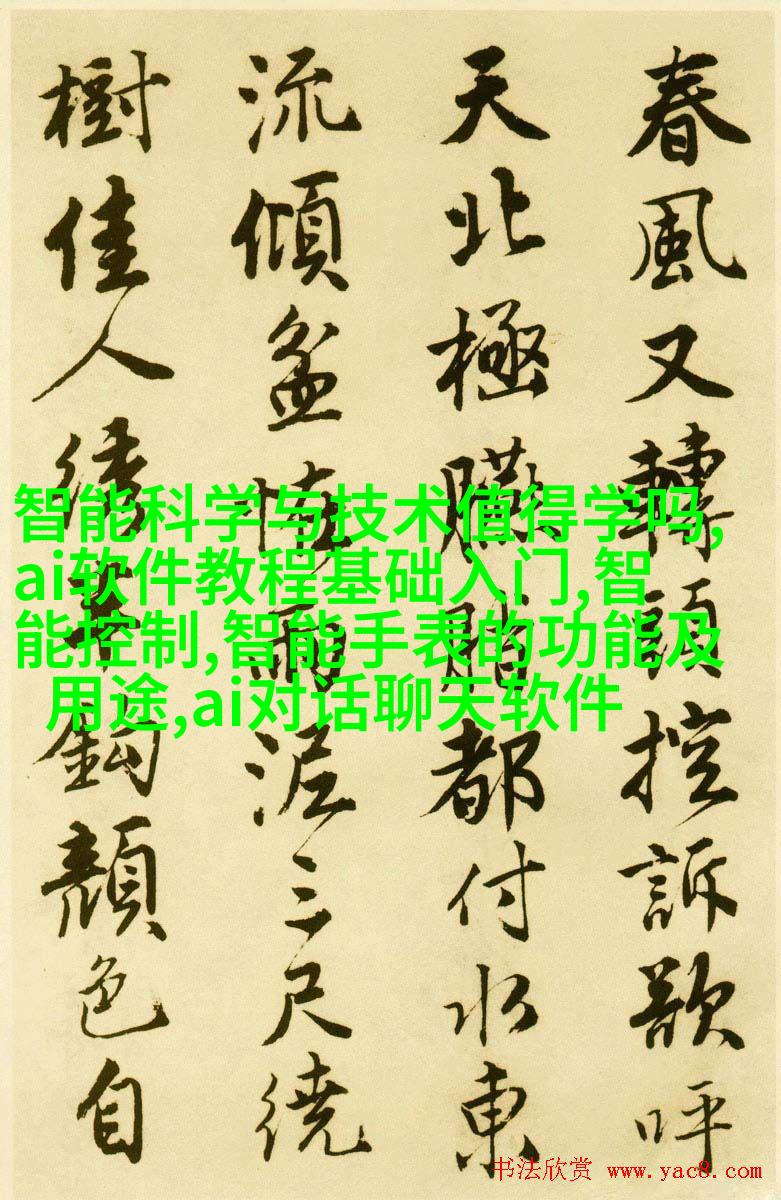 春風又轉頭控訴呼
天北極都付水東
流傾盆雨泥三尺繞
樹佳人鉤顏色自
智能科学与技术值得学吗,
ai软件教程基础入门,智
能控制,智能手表的功能及
用途,ai对话聊天软件
书法欣赏 www.yac8.com